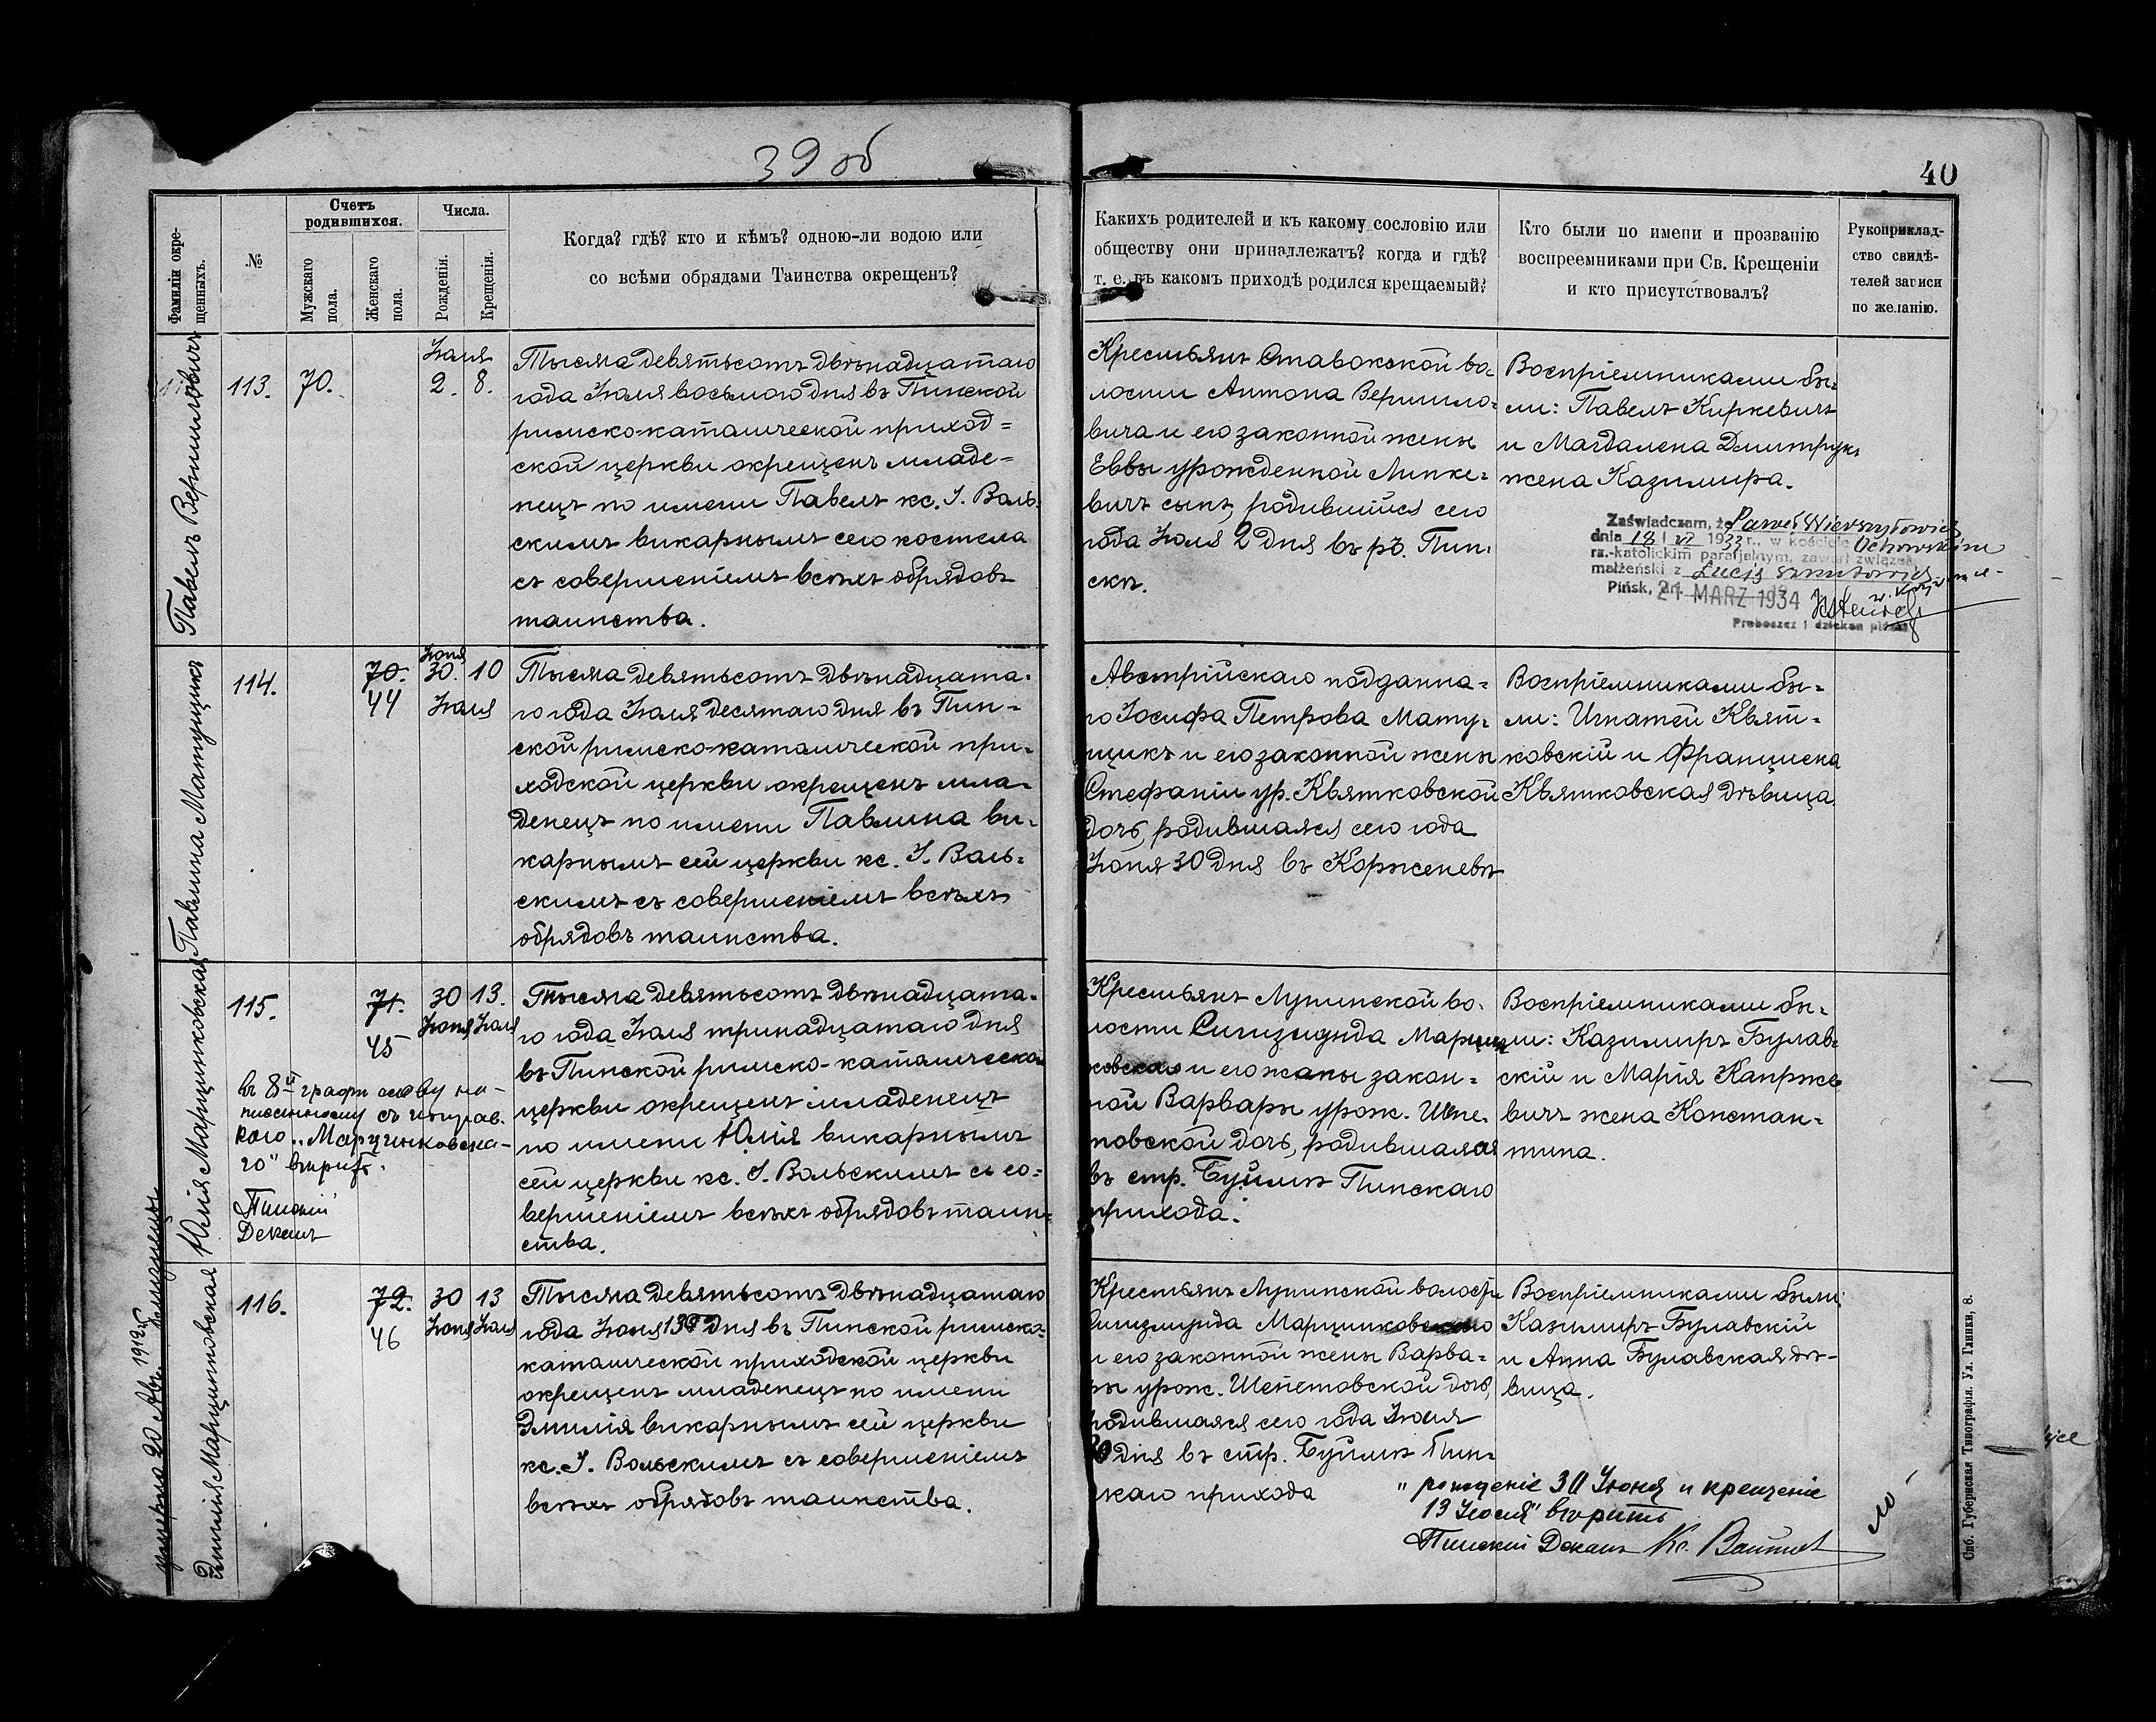 39 об
40
Фамиліи окре-
щенныхъ.
№
Счетъ
родившихся.
Мужскаго
пола.
Женскаго
пола.
Числа.
Рожденія.
Крещенія.
Когда? гдѣ? кто и кѣмъ? одною-ли водою или
со всѣми обрядами Таинства окрещенъ?
Какихъ родителей и къ какому сословію или
обществу они принадлежатъ? когда и гдѣ?
т. е. въ какомъ приходѣ родился крещаемый?
Кто были по имени и прозванію
воспреемниками при Св. Крещеніи
и кто присутствовалъ?
Рукоприклад-
ство свидѣ-
телей записи
по желанію.
Павелъ Вершиловичъ
113.
70.
Іюля
2. 8.
Тысяча девятьсотъ двѣнадцатаго
года Іюля восьмого дня въ Пинской
римско-католической приход=
ской церкви окрещенъ младе=
нецъ по имени Павелъ кс. І. Воль-
скимъ викарнымъ сего костела
съ совершеніемъ всѣхъ обрядовъ
таинства.
Крестьянъ Ставокской во-
лости Антона Вершило-
вича и его законной жены
Еввы урожденной Липке-
вичъ сынъ, родившійся сего
года Іюля 2 дня въ гор. Пин-
скѣ.
Воспріемниками бы-
ли: Павелъ Киркевичъ
и Магдалена Дмитрукъ
жена Казимира.
Zaświadczam, że Paweł Wierszyłowicz
dnia 18 VI 1933 r., w kościele Ochowskim
rz.-katolickim parafjalnym, zawarł związek
małżeński z Łucją
Pińsk, dn. 21 MARZ 1934
Proboszcz i dziekan piński
Павлина Матущикъ
114.
70.
44
Іюня
30. 10
Іюля
Тысяча девятьсотъ двѣнадцата-
го года Іюля десятаго дня въ Пин-
ской римско-католической при-
ходской церкви окрещенъ мла-
денецъ по имени Павлина ви-
карнымъ сей церкви кс. І. Воль-
скимъ съ совершеніемъ всѣхъ
обрядовъ таинства.
Австрійскаго подданна-
го Іосифа Петрова Мату-
щикъ и его законной жены
Стефаніи ур. Квятковской
дочь, родившаяся сего года
Іюня 30 дня въ Корженевѣ
Воспріемниками бы-
ли: Игнатей Квят-
ковскій и Франциска
Квятковская дѣвица
Юлія Марцинковская
115.
71.
45
30 13.
Іюня Іюля
въ 8й графѣ слову на-
писанному съ исправ.
кого „Марцинковска-
го" вѣрить.
Пинскій
Деканъ
Тысяча девятьсотъ двѣнадцата-
го года Іюля тринадцатаго дня
въ Пинской римско-католической
церкви окрещенъ младенецъ
по имени Юлія викарнымъ
сей церкви кс. І. Вольскимъ съ со-
вершеніемъ всѣхъ обрядовъ таин-
ства.
Крестьянъ Лунинской во-
лости Сигизмунда Марцин
ковскаго и его жены закон-
ной Варвары урож. Шепе-
товской дочь, родившаяся
въ стр. Буйлы Пинскаго
прихода.
Воспріемниками бы-
ли: Казимиръ Булав-
скій и Марія Канрже
вичъ жена Констан-
тина.
Эмилія Марцинковская
116.
72.
46
30 13
Іюня Іюля
Тысяча девятьсотъ двѣнадцатаго
года Іюля 13 дня въ Пинской римско-
католической приходской церкви
окрещенъ младенецъ по имени
Эмилія викарнымъ сей церкви
кс. І. Вольскимъ съ совершеніемъ
всѣхъ обрядовъ таинства.
Крестьянъ Лунинской волости
Сигизмунда Марцинковскаго
и его законной жены Варва-
ры урож. Шепетовской дочь,
родившаяся сего года Іюня
30 дня въ стр. Буйлы Пин-
скаго прихода
Воспріемниками были:
Казимиръ Булавскій
и Анна Булавская дѣ-
вица.
„рожденіе 30 Іюня и крещеніе
13 Іюля" вѣрить
Пинскій Деканъ Кс.
Спб. Губернская Типографія. Ул. Глинки, 8.